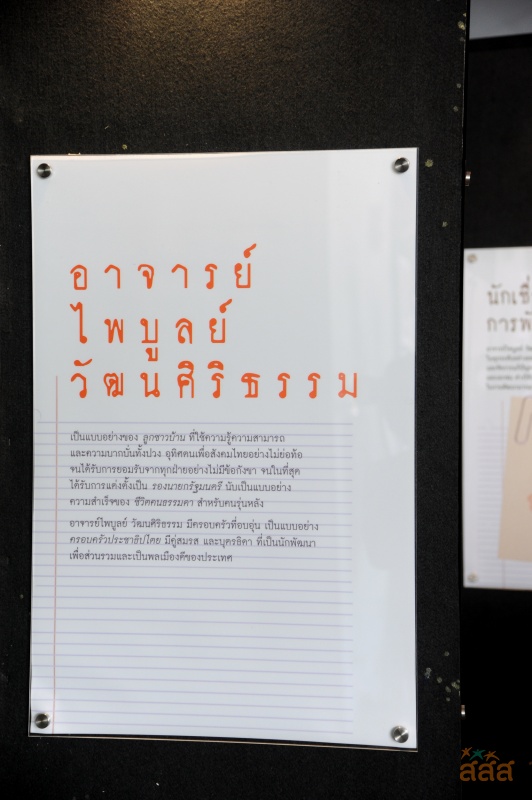 อาจารย์
ไพบูลย์
วัฒนศิริธรรม
เป็นแบบอย่างของ ลูกชาวบ้าน ที่ใช้ความรู้ความสามารถ
และความบากบั่นทั้งปวง อุทิศตนเพื่อสังคมไทยอย่างไม่ย่อท้อ
จนได้รับการยอมรับจากทุกฝ่ายอย่างไม่มีข้อกังขา จนในที่สุด
ได้รับการแต่งตั้งเป็น รองนายกรัฐมนตรี นับเป็นแบบอย่าง
ความสำเร็จของ ชีวิตคนธรรมดา สำหรับคนรุ่นหลัง
อาจารย์ไพบูลย์ วัฒนศิริธรรม มีครอบครัวที่อบอุ่น เป็นแบบอย่าง
ครอบครัวประชาธิปไตย มีคู่สมรส และบุตรธิดา ที่เป็นนักพัฒนา
เพื่อส่วนรวมและเป็นพลเมืองดีของประเทศ
นักเชื่
การพั
สสส